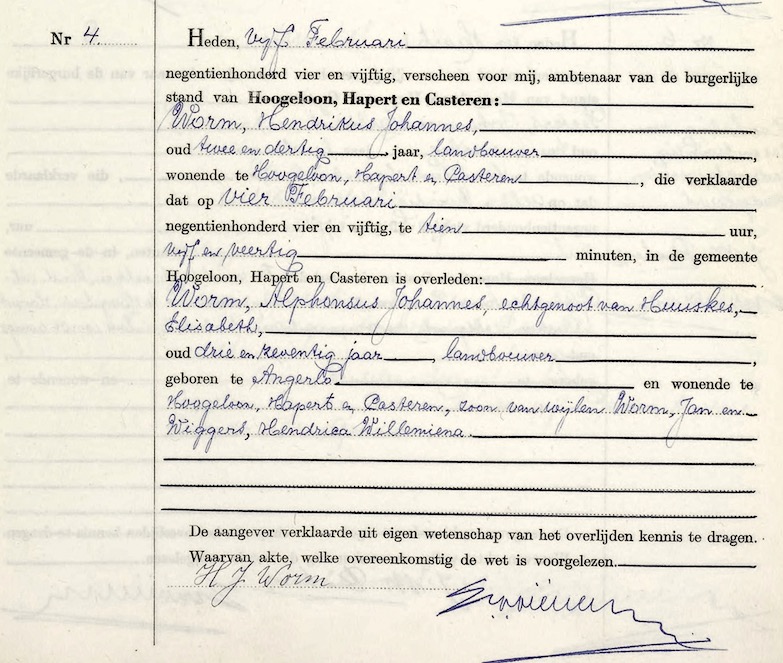 Nr 4. Heden, vijf Februari
negentienhonderd vier en vijftig, verscheen voor mij, ambtenaar van de burgerlijke
stand van Hoogeloon, Hapert en Casteren:
Worm, Hendrikus Johannes,
oud twee en dertig jaar, landbouwer,
wonende te Hoogeloon, Hapert en Casteren, die verklaarde
dat op vier Februari
negentienhonderd vier en vijftig, te tien uur,
vijf en veertig minuten, in de gemeente
Hoogeloon, Hapert en Casteren is overleden:
Worm, Alphonsus Johannes, echtgenoot van Huuskes,
Elisabeth,
oud drie en zeventig jaar, landbouwer,
geboren te Angerlo en wonende te
Hoogeloon, Hapert en Casteren, zoon van wijlen Worm, Jan en
Wiggers, Hendrica Willemiena.
De aangever verklaarde uit eigen wetenschap van het overlijden kennis te dragen.
Waarvan akte, welke overeenkomstig de wet is voorgelezen.
H J Worm